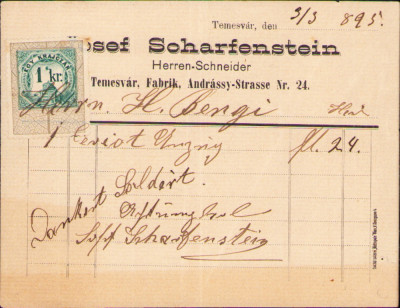 Temesvár, den 3/3 895.
Josef Scharfenstein
Herren-Schneider
Temesvár, Fabrik, Andrássy-Strasse Nr. 24.
EGY KRAJCZÁR
1 kr.
Herrn H. Bengi
1 Ceviot Anzug fl. 24.
Dankent Saldirt.
Achtungsvol
Josef Scharfenstein